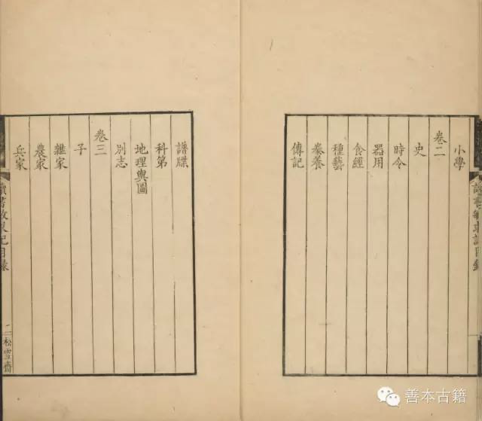 讀書敏求記目錄
小學
卷二
史
時令
器用
食經
種藝
豢養
傳記
譜牒
科第
地理輿圖
別志
卷三
子
雜家
農家
兵家
讀書敏求記目錄
二
松雪齋
善本古籍